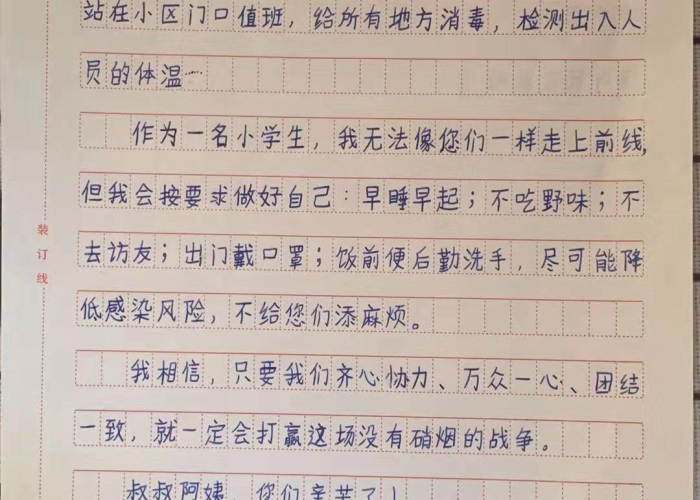 站在小区门口值班，给所有地方消毒，检测出入人
员的体温…
作为一名小学生，我无法像您们一样走上前线，
但我会按要求做好自己：早睡早起；不吃野味；不
去访友；出门戴口罩；饭前便后勤洗手，尽可能降
低感染风险，不给您们添麻烦。
我相信，只要我们齐心协力、万众一心、团结
一致，就一定会打赢这场没有硝烟的战争。
叔叔阿姨，您们辛苦了！
装订线